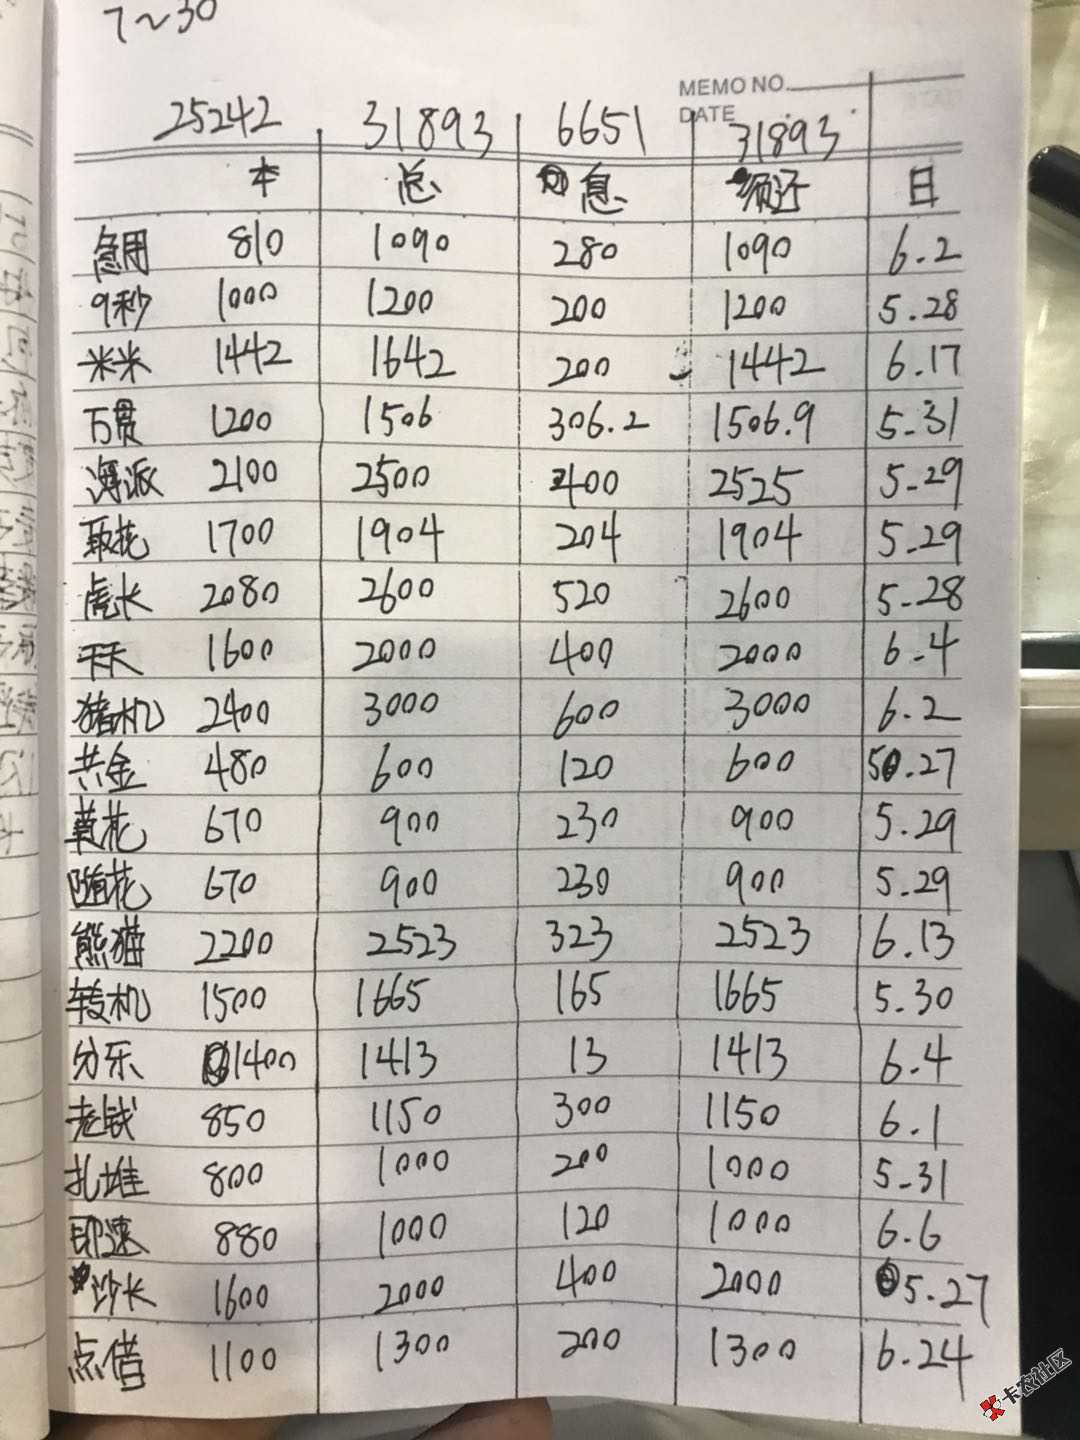 7~30
MEMO NO.
DATE
25242 31893 6651 31893
本 总 息 须还 日
急用 810 1090 280 1090 6.2
9秒 1000 1200 200 1200 5.28
米米 1442 1642 200 1442 6.17
万贯 1200 1506 306.2 1506.9 5.31
海派 2100 2500 400 2525 5.29
取花 1700 1904 204 1904 5.29
虎长 2080 2600 520 2600 5.28
天天 1600 2000 400 2000 6.4
猪机 2400 3000 600 3000 6.2
共金 480 600 120 600 5.27
黄花 670 900 230 900 5.29
随花 670 900 230 900 5.29
熊猫 2200 2523 323 2523 6.13
转机 1500 1665 165 1665 5.30
分乐 1400 1413 13 1413 6.4
老钱 850 1150 300 1150 6.1
扎堆 800 1000 200 1000 5.31
即速 880 1000 120 1000 6.6
沙长 1600 2000 400 2000 5.27
点借 1100 1300 200 1300 6.24
卡农社区